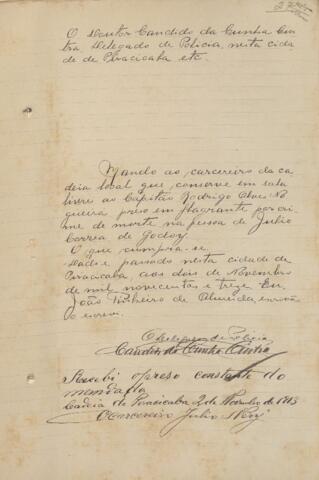 O Doutor Candido da Cunha Cin
tra Delegado de Policia, nesta cida
de de Piracicaba etc.
Mando ao carcereiro da ca
deia local que conserve em sala
livre ao Capitão Rodrigo Alves No
gueira preso em flagrante por cri
me de morte na pessoa de Julio
Correa de Godoy.
O que cumpra-se.
Dado e passado nesta cidade de
Piracicaba, aos dois de Novembro
de mil novecentos e treze. Eu,
João Pinheiro de Almeida escrivão
o escrevi.
O Delegado de Policia
Candido da Cunha Cintra
Recebi o preso constante do
mandado
Cadeia de Piracicaba 2 de Novembro de 1913
O Carcereiro Julio